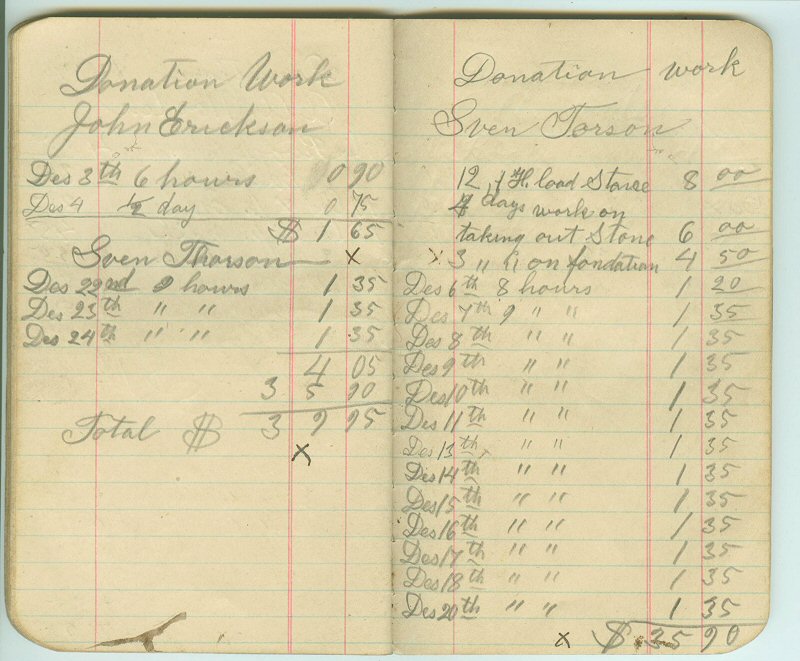 Donation Work
John Erickson
Des 3th 6 hours 0 90
Des 4 1/2 day 0 75
$ 1 65
Sven Thorson x
Des 22nd 9 hours 1 35
Des 23th " " 1 35
Des 24th " " 1 35
4 05
3 5 90
Total $ 3 9 95
x
Donation work
Sven Torson
12, 1 H. load Stone 8 00
4 days work on
taking out Stone 6 00
x 3 " " on fondation 4 50
Des 6th 8 hours 1 20
Des 7th 9 " " 1 35
Des 8th " " 1 35
Des 9th " " 1 35
Des 10th " " 1 35
Des 11th " " 1 35
Des 13th " " 1 35
Des 14th " " 1 35
Des 15th " " 1 35
Des 16th " " 1 35
Des 17th " " 1 35
Des 18th " " 1 35
Des 20th " " 1 35
x $ 35 90